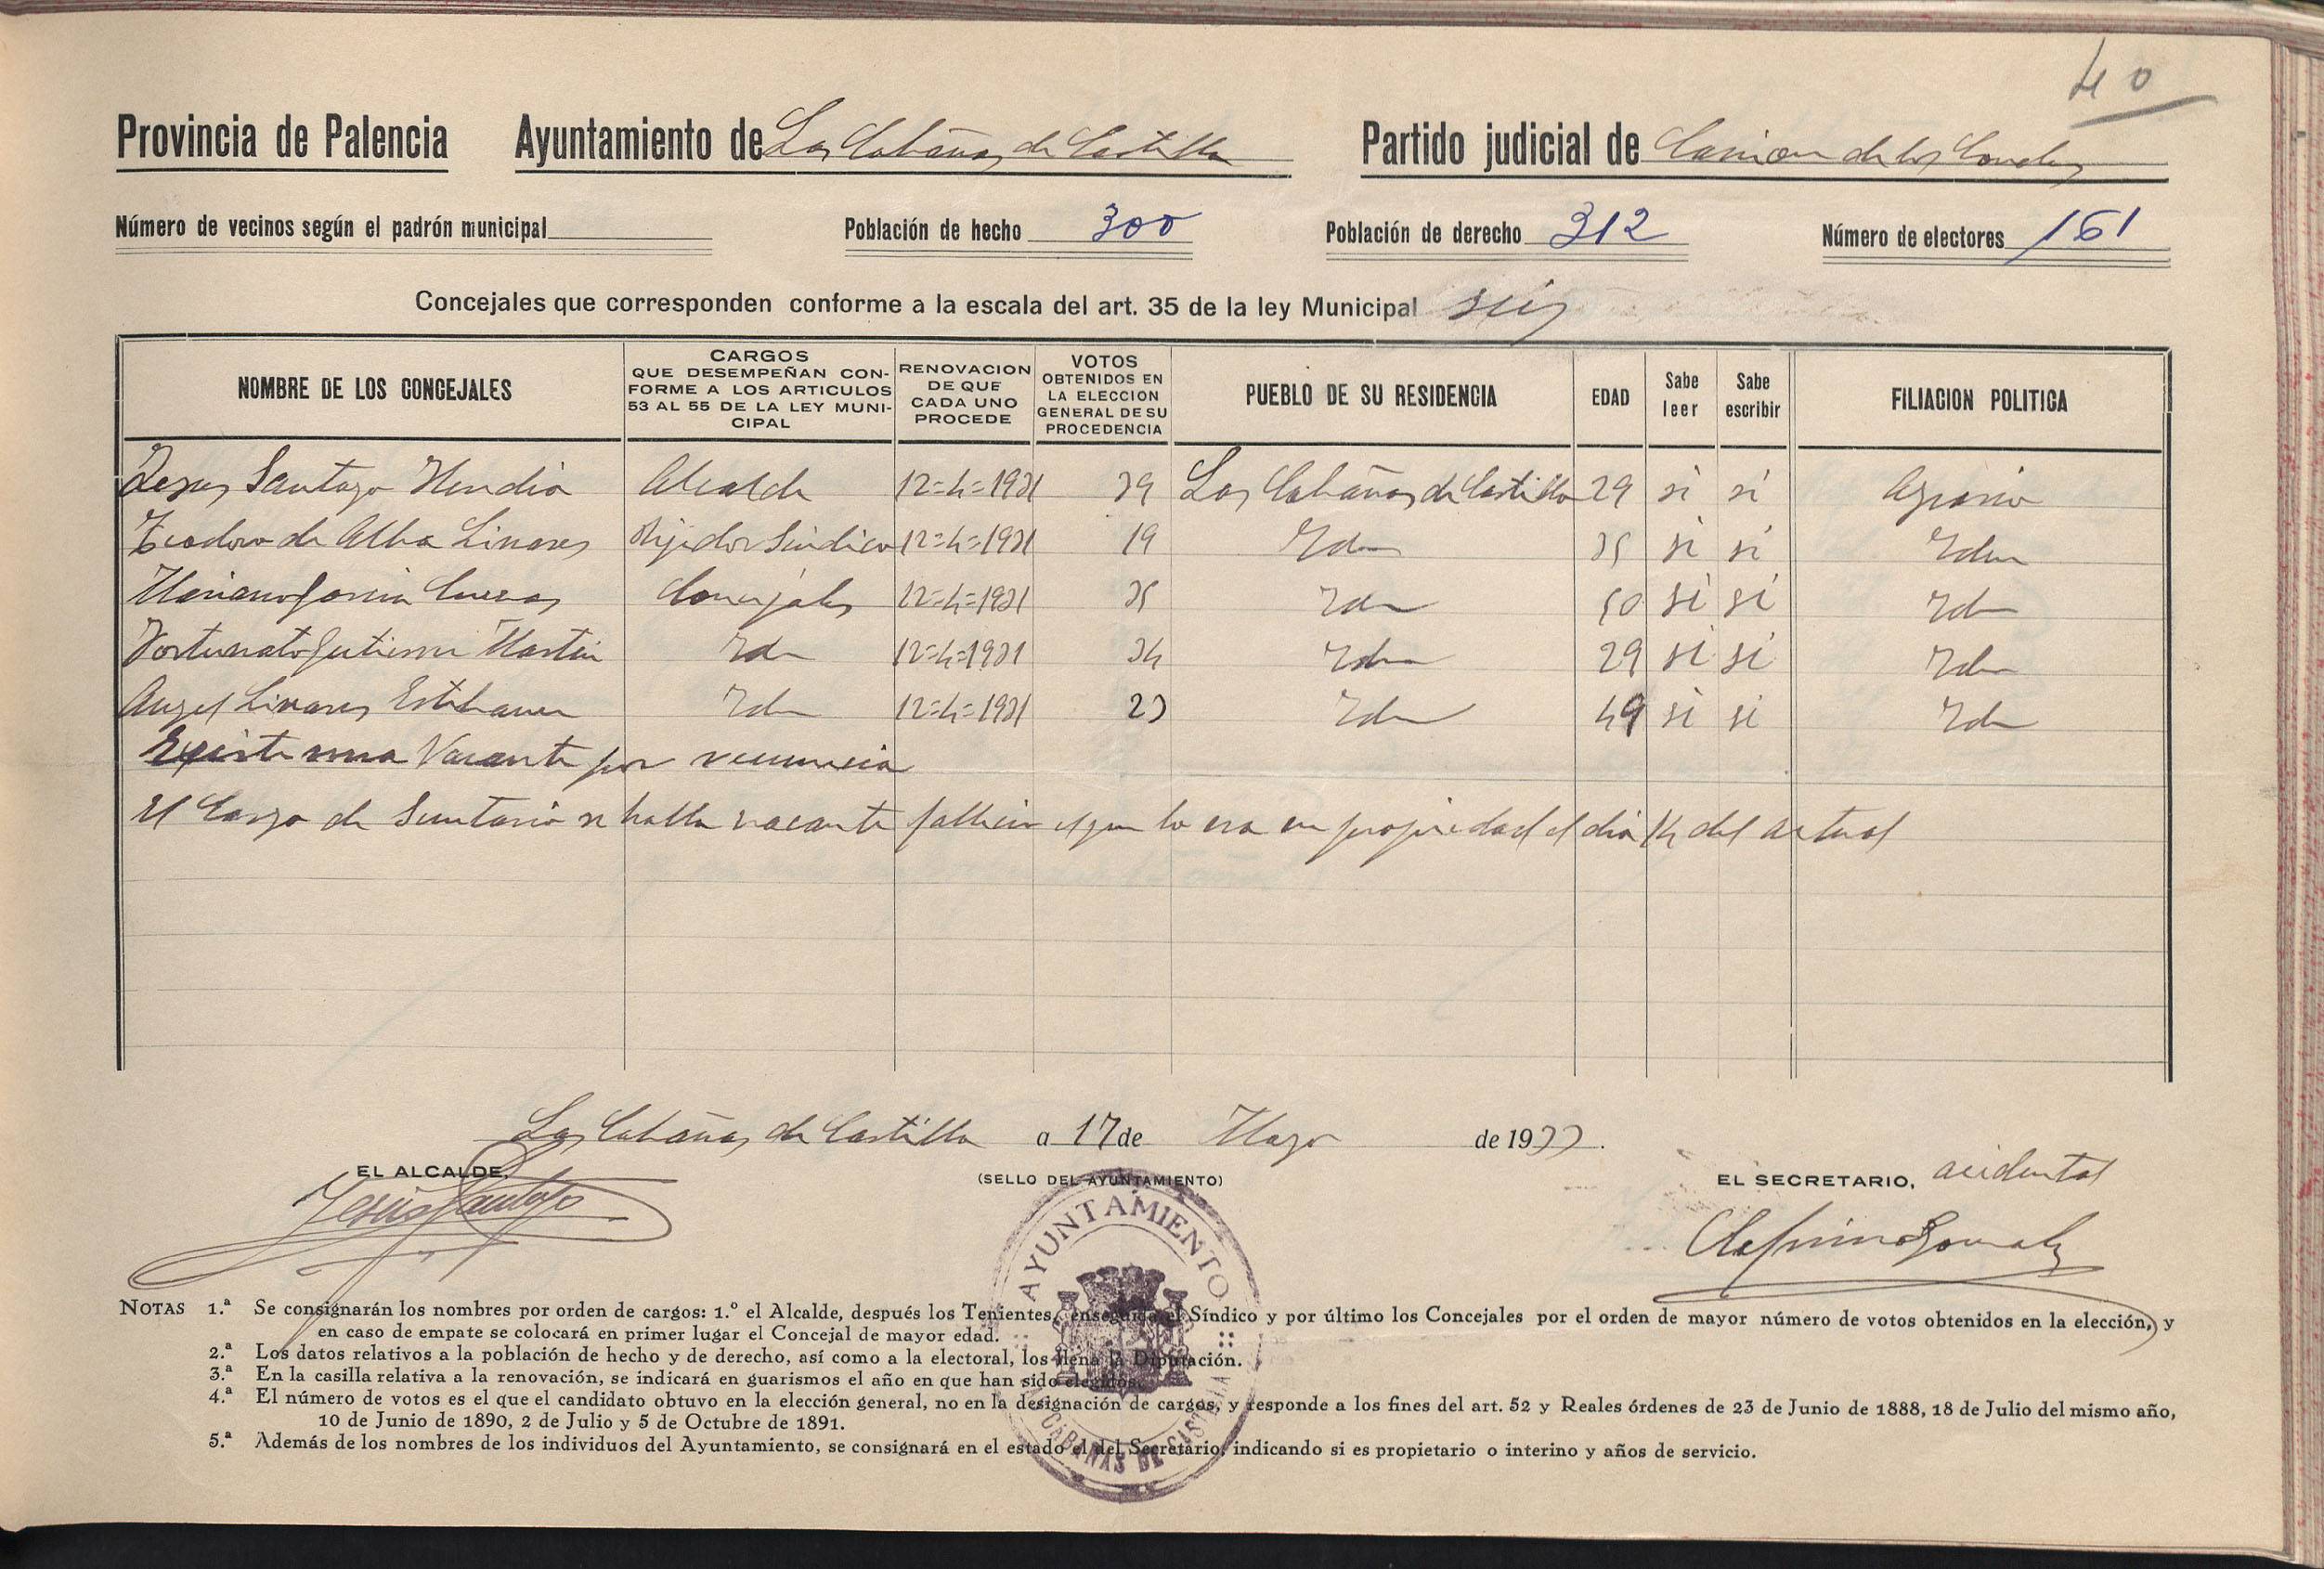 40
Provincia de Palencia Ayuntamiento de Las Cabañas de Castilla Partido judicial de Carrion de los Condes
Número de vecinos según el padrón municipal Población de hecho 300 Población de derecho 312 Número de electores 161
Concejales que corresponden conforme a la escala del art. 35 de la ley Municipal seis
NOMBRE DE LOS CONCEJALES CARGOS QUE DESEMPEÑAN CONFORME A LOS ARTICULOS 53 AL 55 DE LA LEY MUNICIPAL RENOVACION DE QUE CADA UNO PROCEDE VOTOS OBTENIDOS EN LA ELECCION GENERAL DE SU PROCEDENCIA PUEBLO DE SU RESIDENCIA EDAD Sabe leer Sabe escribir FILIACION POLITICA
Jesus Santoyo Alcalde 12=4=1931 39 Las Cabañas de Castilla 29 si si Agrario
Teodoro de Alba Linares Rejidor Sindico 12=4=1931 19 Idem 35 si si Idem
Mariano Garcia Cuevas Concejales 12=4=1931 35 Idem 50 si si Idem
Fortunato Gutierrez Martin Idem 12=4=1931 34 Idem 29 si si Idem
Angel Linares Idem 12=4=1931 23 Idem 49 si si Idem
Existe una Vacante por renuncia
El Cargo de Secretario se halla vacante fallecio el que lo era en propiedad el dia 14 del actual
Las Cabañas de Castilla a 17 de Mayo de 1933.
EL ALCALDE, (SELLO DEL AYUNTAMIENTO) EL SECRETARIO, acidental
Jesús Santoyo
AYUNTAMIENTO
CABAÑAS DE CASTILLA
NOTAS 1.ª Se consignarán los nombres por orden de cargos: 1.º el Alcalde, después los Tenientes, enseguida el Síndico y por último los Concejales por el orden de mayor número de votos obtenidos en la elección, y
en caso de empate se colocará en primer lugar el Concejal de mayor edad.
2.ª Los datos relativos a la población de hecho y de derecho, así como a la electoral, los llena la Diputación.
3.ª En la casilla relativa a la renovación, se indicará en guarismos el año en que han sido elegidos.
4.ª El número de votos es el que el candidato obtuvo en la elección general, no en la designación de cargos, y responde a los fines del art. 52 y Reales órdenes de 23 de Junio de 1888, 18 de Julio del mismo año,
10 de Junio de 1890, 2 de Julio y 5 de Octubre de 1891.
5.ª Además de los nombres de los individuos del Ayuntamiento, se consignará en el estado el del Secretario, indicando si es propietario o interino y años de servicio.